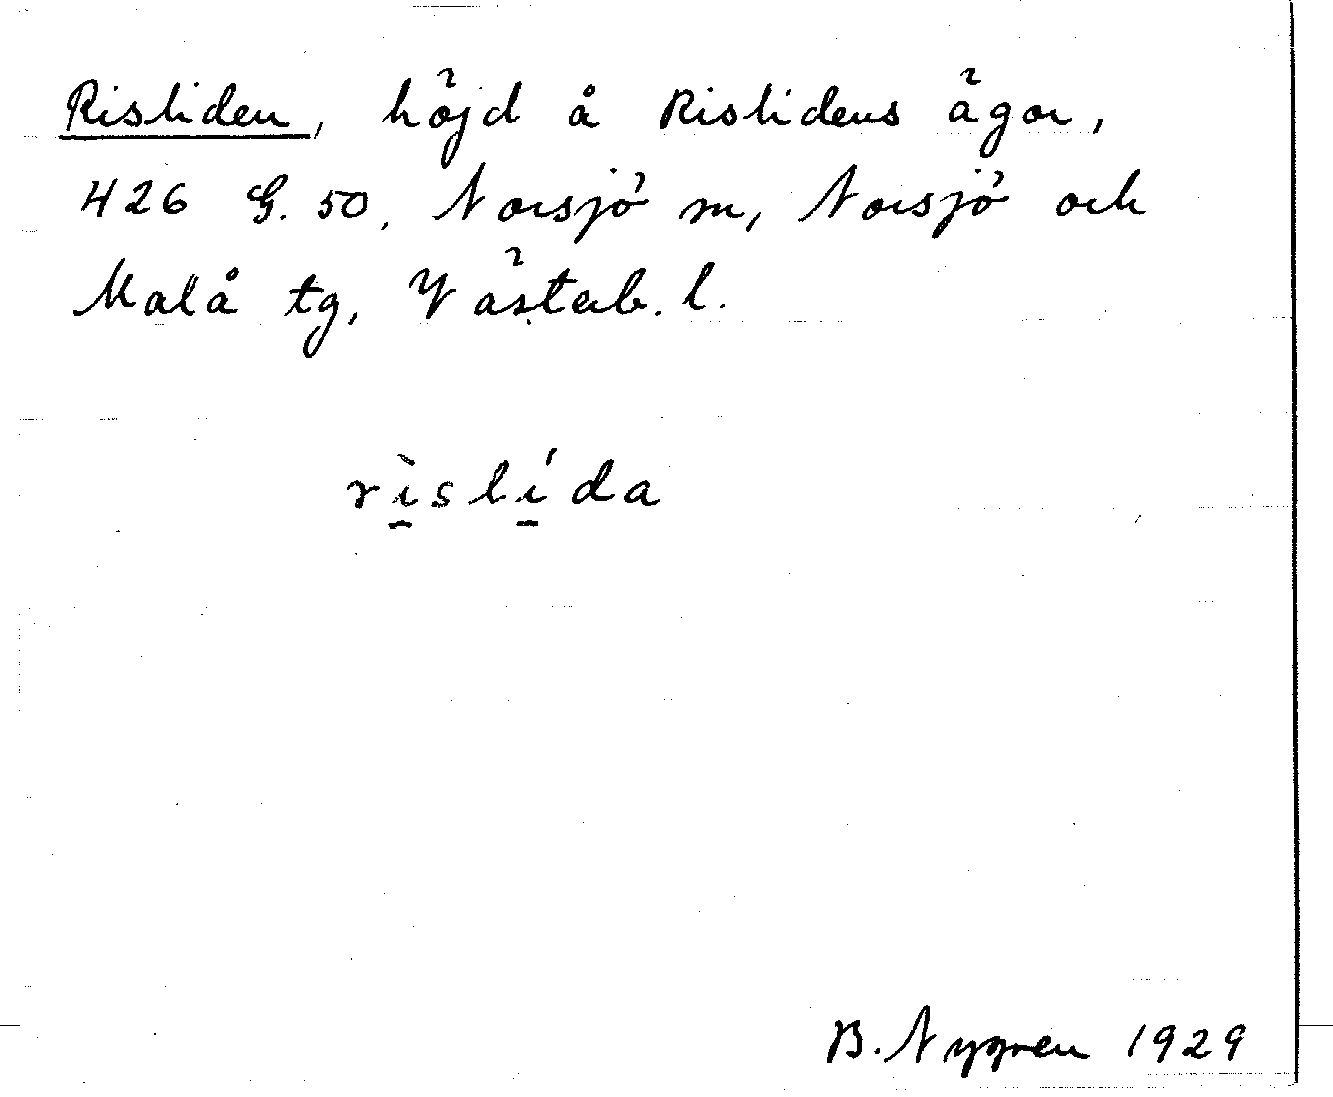 Risliden, höjd å Rislidens ägor,
426 G. 50, Norsjö sn, Norsjö och
Malå tg, Västerb. l.
rì̱slí̱da
B. Nygren 1929